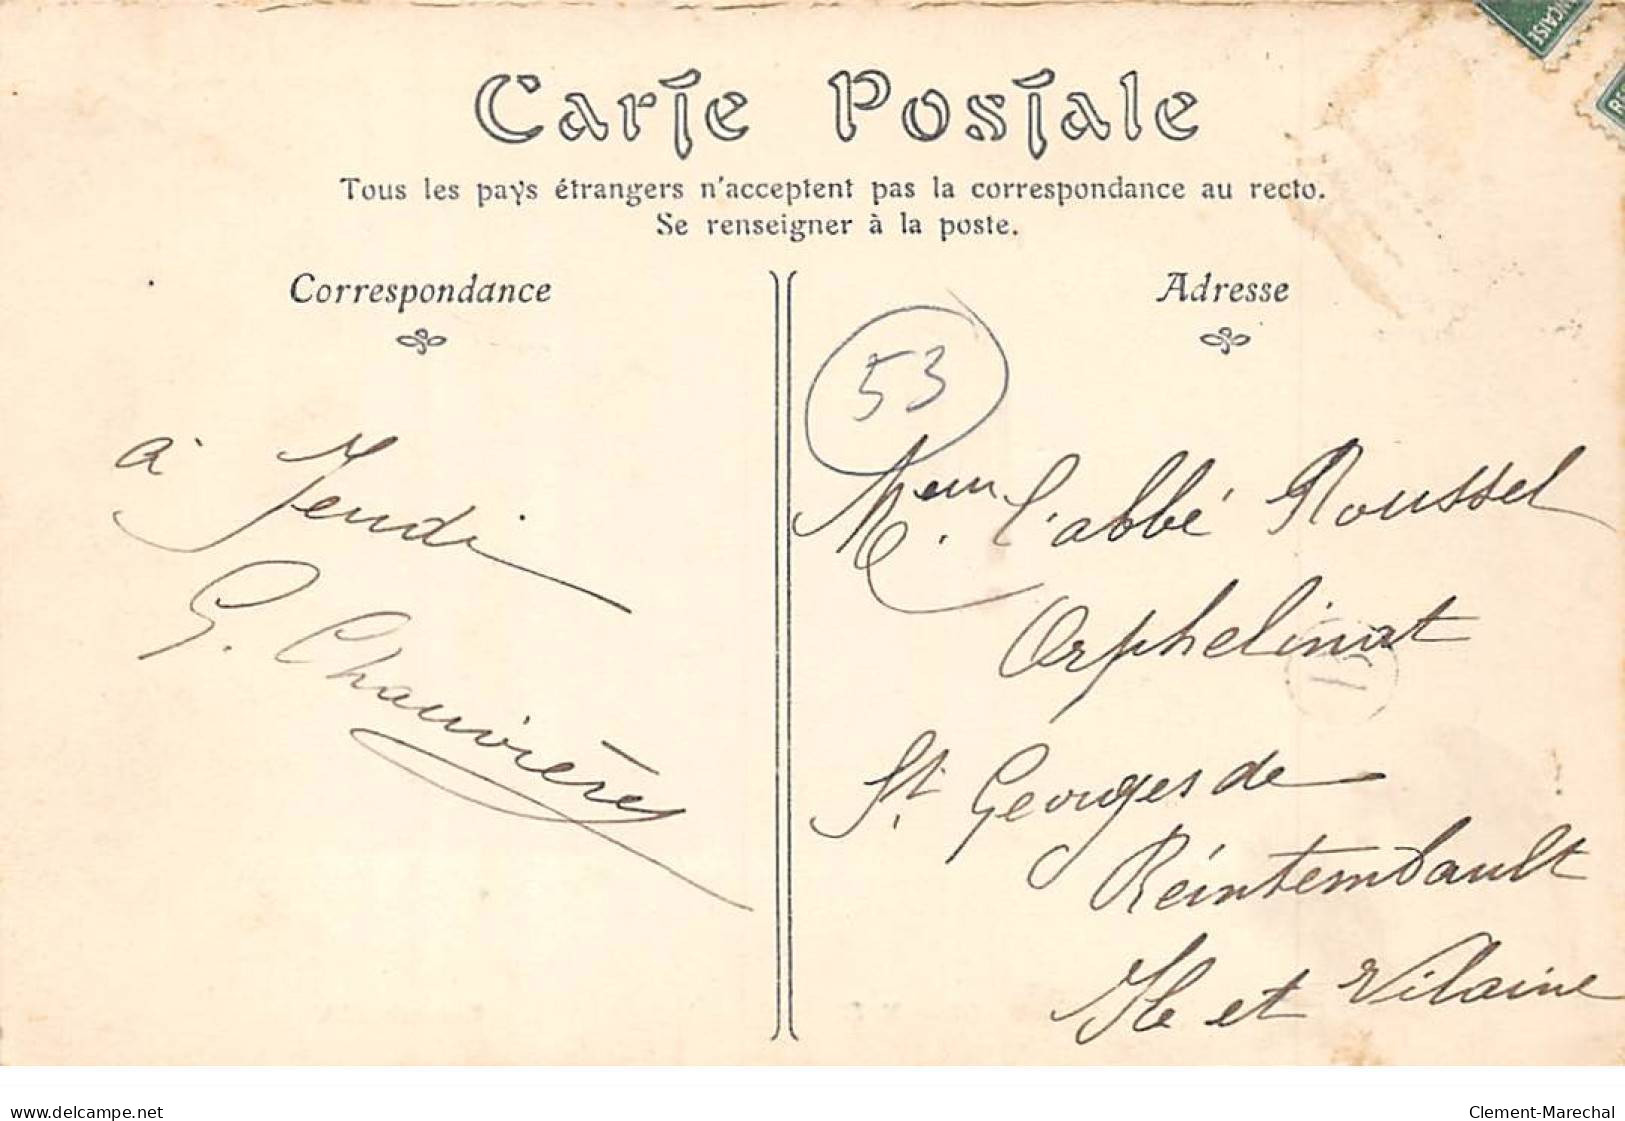 Carte Postale
Tous les pays étrangers n'acceptent pas la correspondance au recto.
Se renseigner à la poste.
Correspondance
Adresse
53
à Jeudi
G. Chauvières
l'abbé Roussel
Orphelinat
St. Georges de
Réintembault
Ile et Vilaine
www.delcampe.net
Clement-Marechal